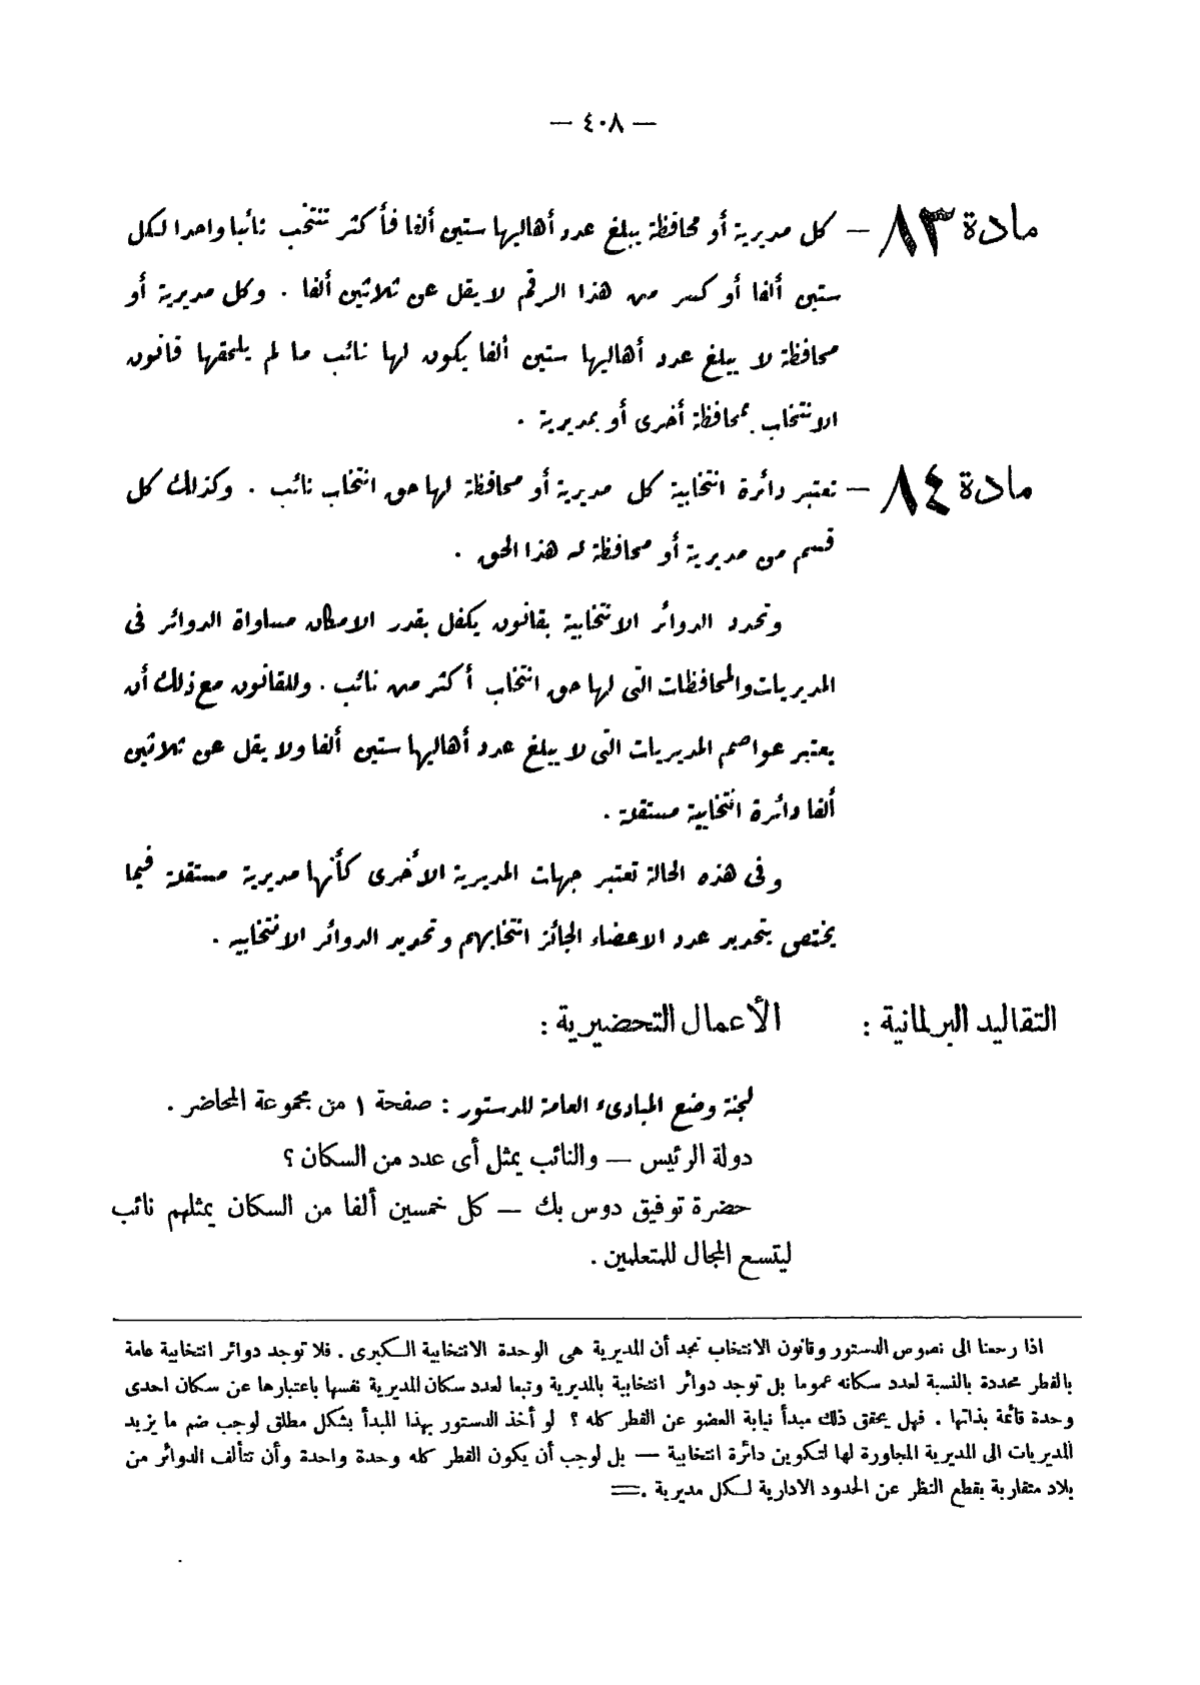 — ٤٠٨ —
مادة ٨٣ — كل مديرية أو محافظة يبلغ عدد أهاليها ستين ألفا فأكثر تنتخب نائبا واحدا لكل
ستين ألفا أو كسر من هذا الرقم لا يقل عن ثلاثين ألفا . وكل مديرية أو
محافظة لا يبلغ عدد أهاليها ستين ألفا يكون لها نائب ما لم يلحقها قانون
الانتخاب بمحافظة أخرى أو بمديرية .
مادة ٨٤ — تعتبر دائرة انتخابية كل مديرية أو محافظة لها حق انتخاب نائب . وكذلك كل
قسم من مديرية أو محافظة له هذا الحق .
وتحدد الدوائر الانتخابية بقانون يكفل بقدر الامكان مساواة الدوائر فى
المديريات والمحافظات التى لها حق انتخاب أكثر من نائب . وللقانون مع ذلك أن
يعتبر عواصم المديريات التى لا يبلغ عدد أهاليها ستين ألفا ولا يقل عن ثلاثين
ألفا دائرة انتخابية مستقلة .
وفى هذه الحالة تعتبر جهات المديرية الأخرى كأنها مديرية مستقلة فيما
يختص بتحديد عدد الاعضاء الجائز انتخابهم وتحديد الدوائر الانتخابيه .
التقاليد البرلمانية : الأعمال التحضيرية :
لجنة وضع المبادىء العامة للدستور : صفحة ١ من مجموعة المحاضر .
دولة الرئيس — والنائب يمثل أى عدد من السكان ؟
حضرة توفيق دوس بك — كل خمسين ألفا من السكان يمثلهم نائب
ليتسع المجال للمتعلمين .
اذا رجعنا الى نصوص الدستور وقانون الانتخاب نجد أن المديرية هى الوحدة الانتخابية الكبرى . فلا توجد دوائر انتخابية عامة
بالقطر محددة بالنسبة لعدد سكانه عموما بل توجد دوائر انتخابية بالمديرية وتبعا لعدد سكان المديرية نفسها باعتبارها عن سكان احدى
وحدة قائمة بذاتها . فهل يحقق ذلك مبدأ نيابة العضو عن القطر كله ؟ لو أخذ الدستور بهذا المبدأ بشكل مطلق لوجب ضم ما يزيد
المديريات الى المديرية المجاورة لها لتكوين دائرة انتخابية — بل لوجب أن يكون القطر كله وحدة واحدة وأن تتألف الدوائر من
بلاد متقاربة بقطع النظر عن الحدود الادارية لكل مديرية .=